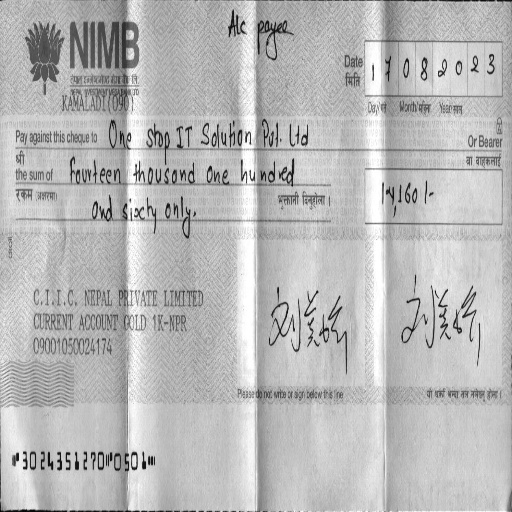 A/c payee
NIMB
नेपाल इन्भेष्टमेन्ट मेगा बैंक लि.
NEPAL INVESTMENT MEGA BANK LTD
KAMALADI(090)
Date 17082023
मिति
Day/गते Month/महिना Year/साल
Pay against this cheque to One stop IT Solution Pvt. Ltd Or Bearer
श्री वा वाहकलाई
the sum of Fourteen thousand one hundred
रकम (अक्षरमा) and sixty only. भुक्तानी दिनुहोला ।
14,160/-
C.I.I.C. NEPAL PRIVATE LIMITED
CURRENT ACCOUNT GOLD 1K-NPR
09001050024174
Please do not write or sign below this line
3024351270 0501